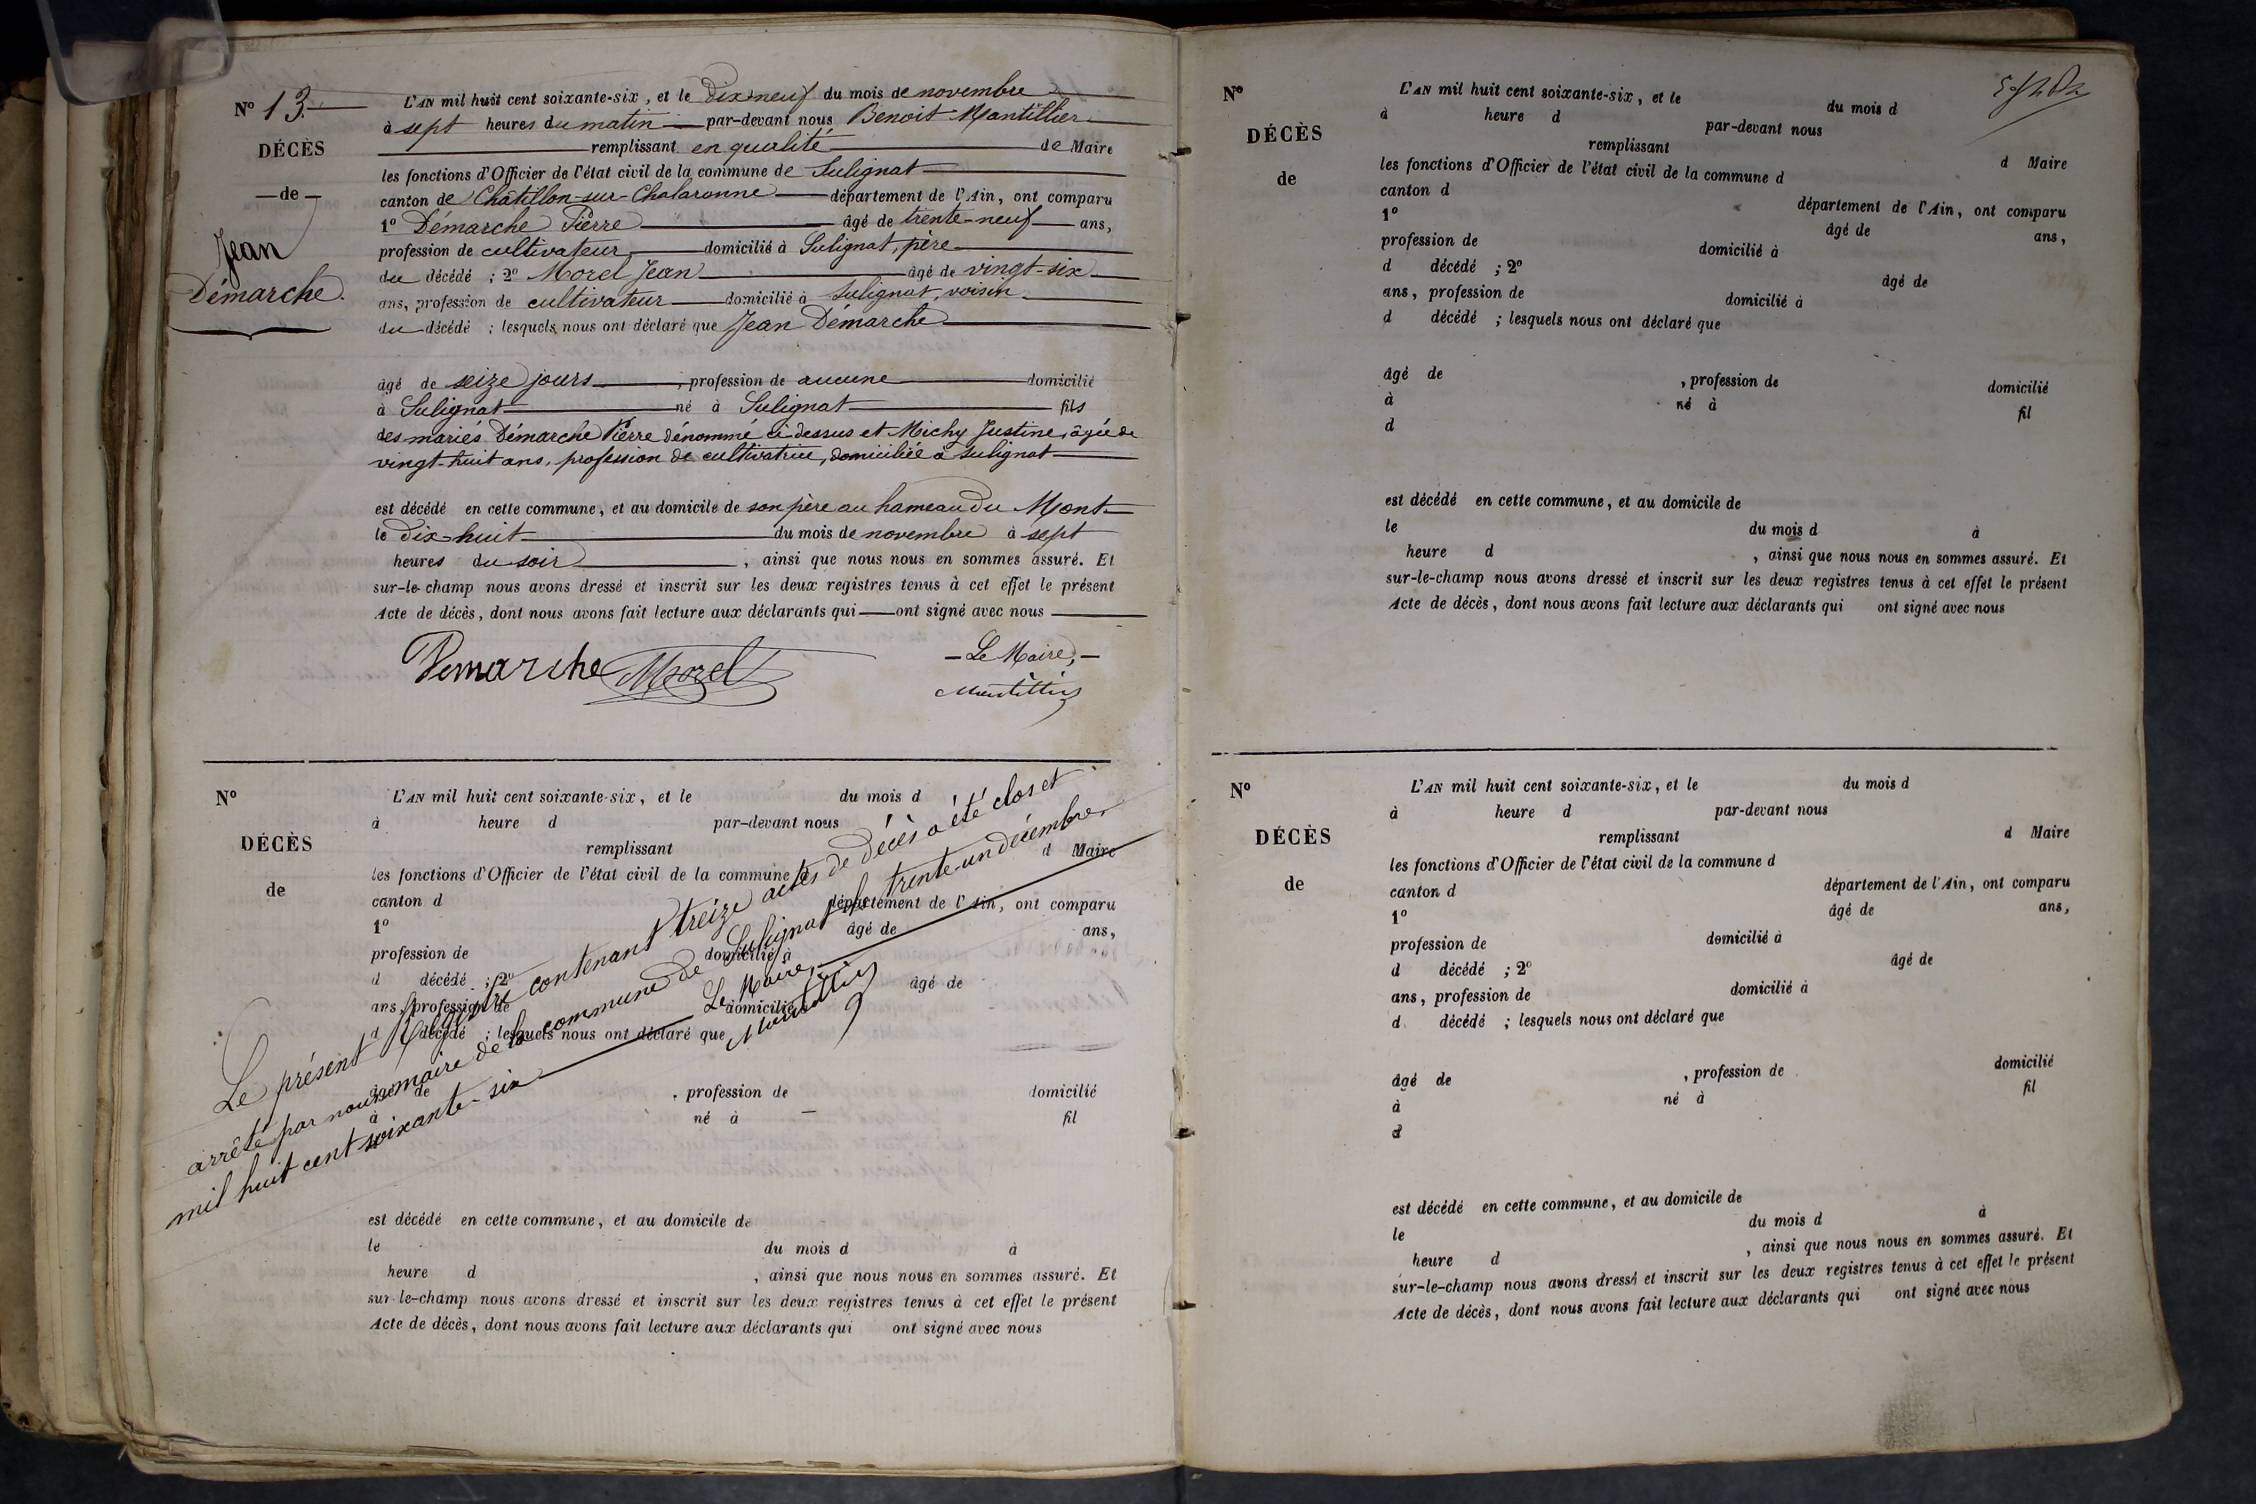 N° 13.
DÉCÈS
de
Jean
Démarche.
L'AN mil huit cent soixante-six, et le dix-neuf du mois de novembre
à sept heures du matin par-devant nous Benoit Mantillier
remplissant en qualité de Maire
les fonctions d'Officier de l'état civil de la commune de Sulignat
canton de Châtillon-sur-Chalaronne département de l'Ain, ont comparu
1° Démarche Pierre âgé de trente-neuf ans,
profession de cultivateur domicilié à Sulignat, père
du décédé ; 2° Morel Jean âgé de vingt-six
ans, profession de cultivateur domicilié à Sulignat, voisin
du décédé ; lesquels nous ont déclaré que Jean Démarche
âgé de seize jours, profession de aucune domicilié
à Sulignat né à Sulignat fils
des mariés Démarche Pierre dénommé ci-dessus et Michy Justine, âgée de
vingt-huit ans, profession de cultivatrice, domiciliée à Sulignat
est décédé en cette commune, et au domicile de son père au hameau du Mont
le dix-huit du mois de novembre à sept
heures du soir, ainsi que nous nous en sommes assuré. Et
sur-le-champ nous avons dressé et inscrit sur les deux registres tenus à cet effet le présent
Acte de décès, dont nous avons fait lecture aux déclarants qui ont signé avec nous
Demarche Morel
Le Maire,
Mantillier
N°
DÉCÈS
de
L'AN mil huit cent soixante-six, et le du mois d
à heure d par-devant nous
remplissant d Maire
les fonctions d'Officier de l'état civil de la commune d
canton d département de l'Ain, ont comparu
1° âgé de ans,
profession de domicilié à
d décédé ; 2° âgé de
ans, profession de domicilié à
d décédé ; lesquels nous ont déclaré que
âgé de , profession de domicilié
à né à fil
d
est décédé en cette commune, et au domicile de
le du mois d à
heure d , ainsi que nous nous en sommes assuré. Et
sur-le-champ nous avons dressé et inscrit sur les deux registres tenus à cet effet le présent
Acte de décès, dont nous avons fait lecture aux déclarants qui ont signé avec nous
Le présent Registre contenant treize actes de décès a été clos et
arrêté par nous maire de la commune de Sulignat le trente-un décembre
mil huit cent soixante-six
Le Maire,
Mantillier
N°
DÉCÈS
de
L'AN mil huit cent soixante-six, et le du mois d
à heure d par-devant nous
remplissant d Maire
les fonctions d'Officier de l'état civil de la commune d
canton d département de l'Ain, ont comparu
1° âgé de ans,
profession de domicilié à
d décédé ; 2° âgé de
ans, profession de domicilié à
d décédé ; lesquels nous ont déclaré que
âgé de , profession de domicilié
à né à fil
d
est décédé en cette commune, et au domicile de
le du mois d à
heure d , ainsi que nous nous en sommes assuré. Et
sur-le-champ nous avons dressé et inscrit sur les deux registres tenus à cet effet le présent
Acte de décès, dont nous avons fait lecture aux déclarants qui ont signé avec nous
N°
DÉCÈS
de
L'AN mil huit cent soixante-six, et le du mois d
à heure d par-devant nous
remplissant d Maire
les fonctions d'Officier de l'état civil de la commune d
canton d département de l'Ain, ont comparu
1° âgé de ans,
profession de domicilié à
d décédé ; 2° âgé de
ans, profession de domicilié à
d décédé ; lesquels nous ont déclaré que
âgé de , profession de domicilié
à né à fil
d
est décédé en cette commune, et au domicile de
le du mois d à
heure d , ainsi que nous nous en sommes assuré. Et
sur-le-champ nous avons dressé et inscrit sur les deux registres tenus à cet effet le présent
Acte de décès, dont nous avons fait lecture aux déclarants qui ont signé avec nous